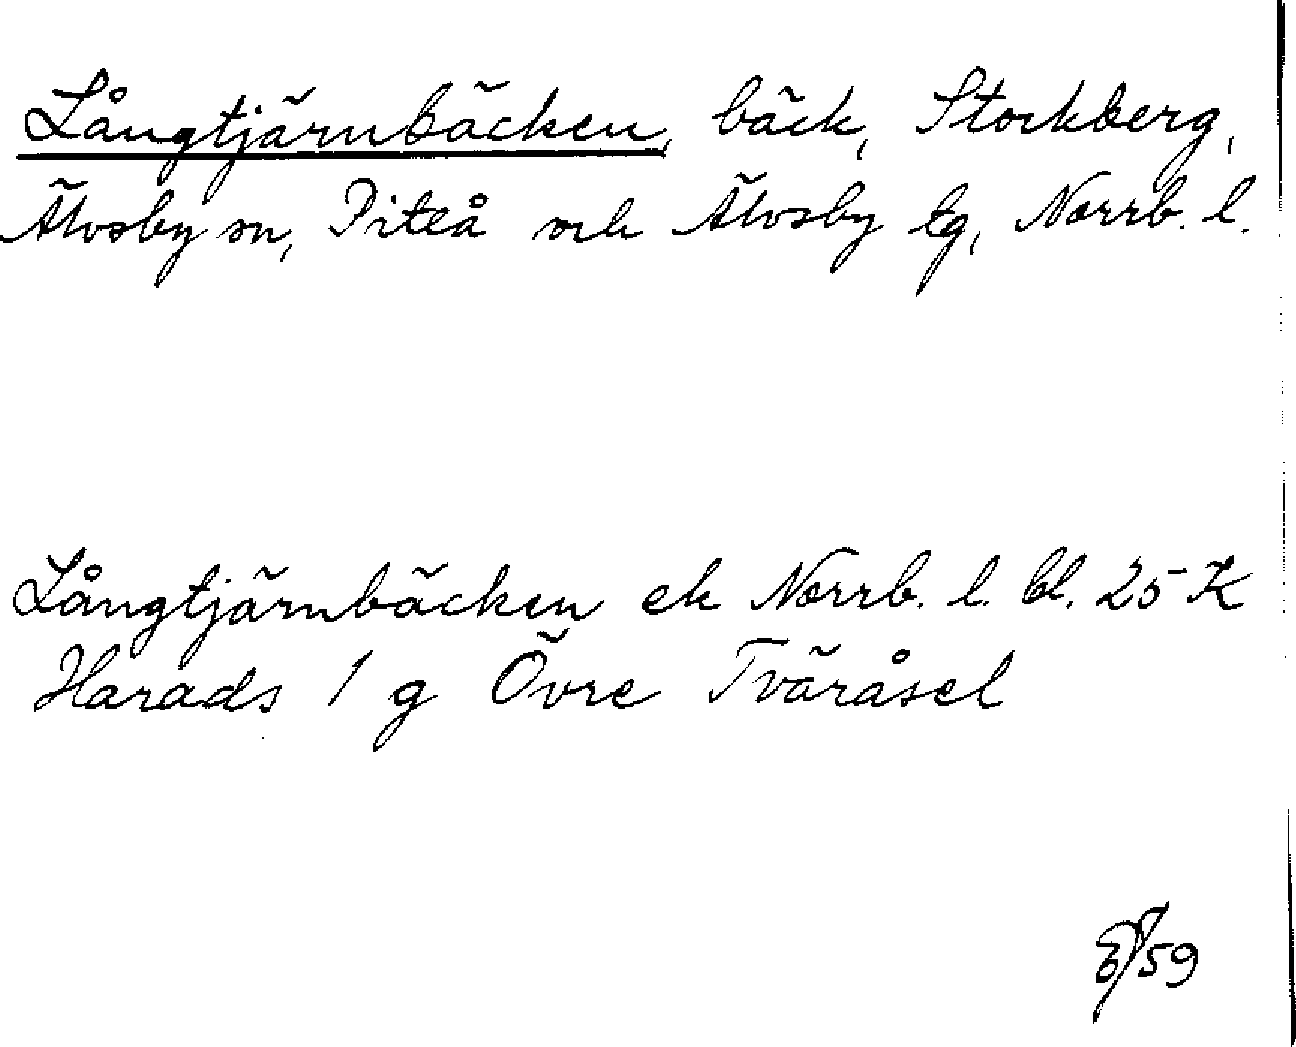 Långtjärnbäcken, bäck, Storkberg,
Älvsby sn, Piteå och Älvsby tg, Norrb. l.
Långtjärnbäcken ek Norrb. l. bl. 25 K
Harads 1 g Övre Tväråsel
59